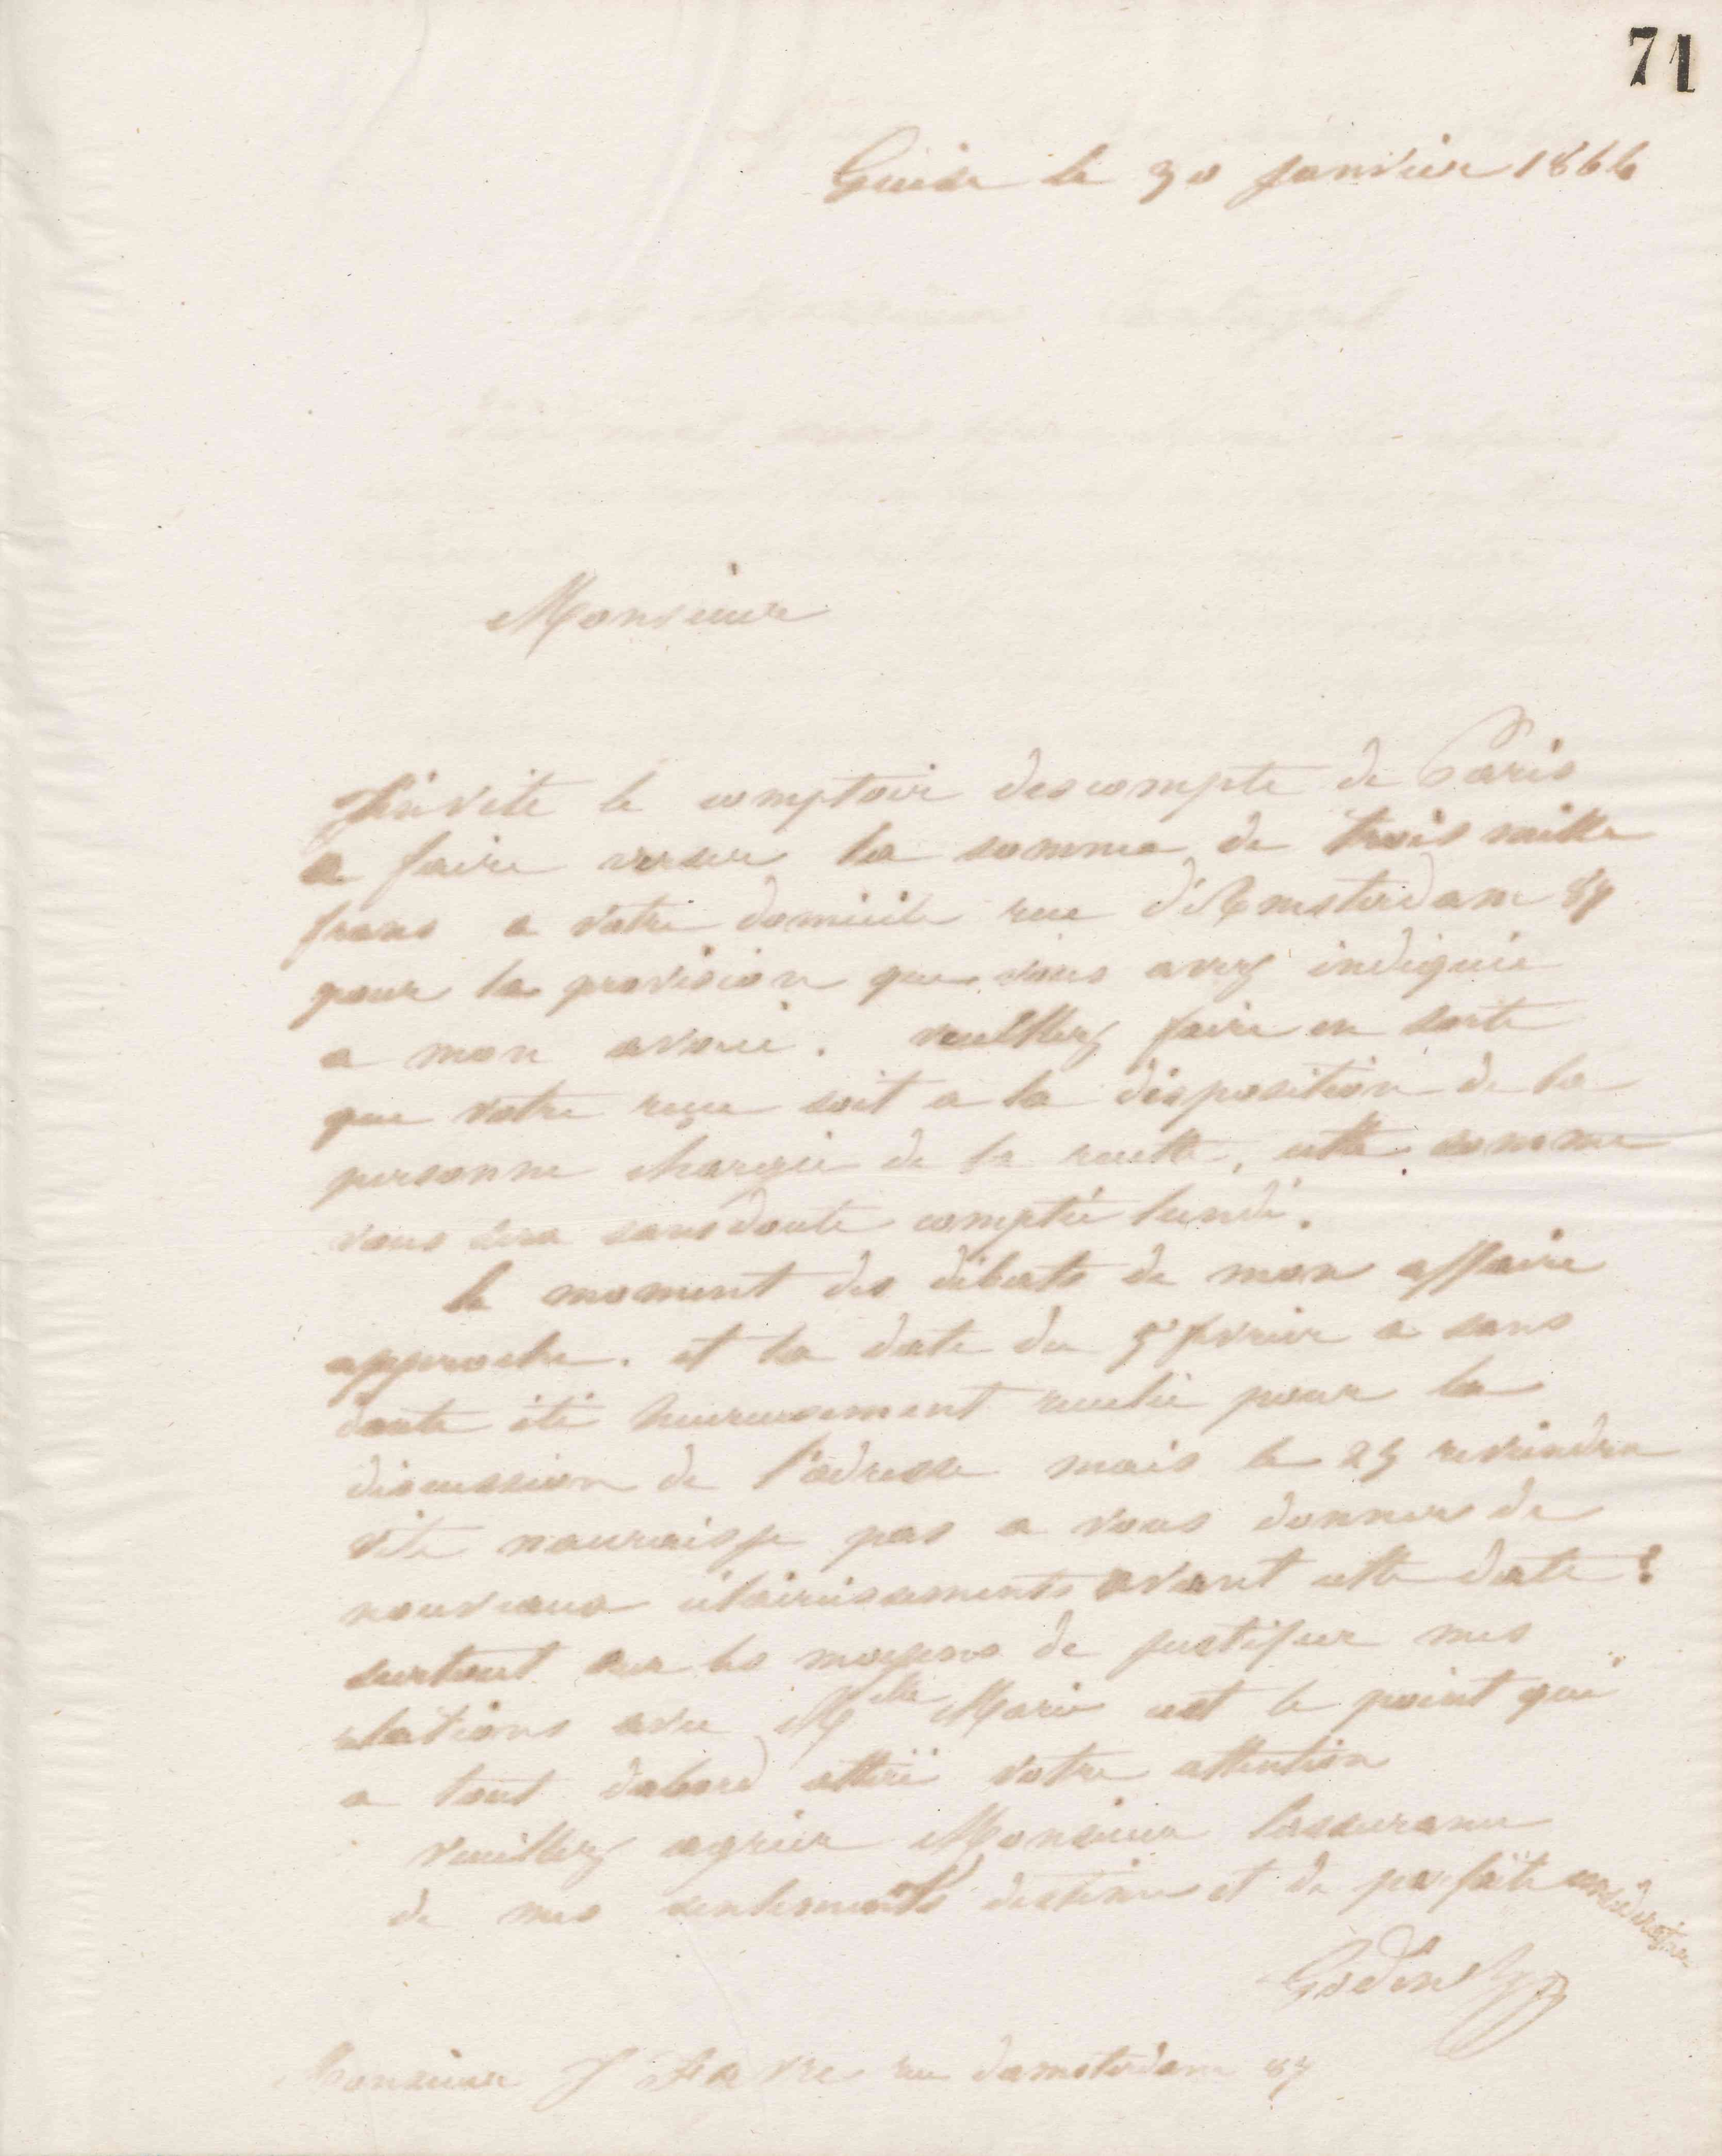 71
Guise le 30 janvier 1866
Monsieur
J'invite le comptoir descompte de Paris
a faire verser la somme de trois mille
francs a votre domicile rue d'Amsterdam 87
pour la provision que vous avez indiquée
a mon avoué. veuillez faire en sorte
que votre reçu soit a la disposition de la
personne chargée de la recette, cette somme
vous sera sans doute comptée lundi.
le moment des débats de mon affaire
approche. et la date du 5 février a sans
doute été heureusement reculée pour la
discussion de l'adresse mais le 25 reviendra
vite naurais je pas a vous donner de
nouveaux éclaircissements avant cette date?
surtout sur les moyens de justifier mes
relations avec Melle Marie cest le point qui
a tout dabord attiré votre attention
veuillez agréer Monsieur lassurance
de mes sentiments destime et de parfaite considération
Godin
Monsieur J Favre rue damsterdam 87